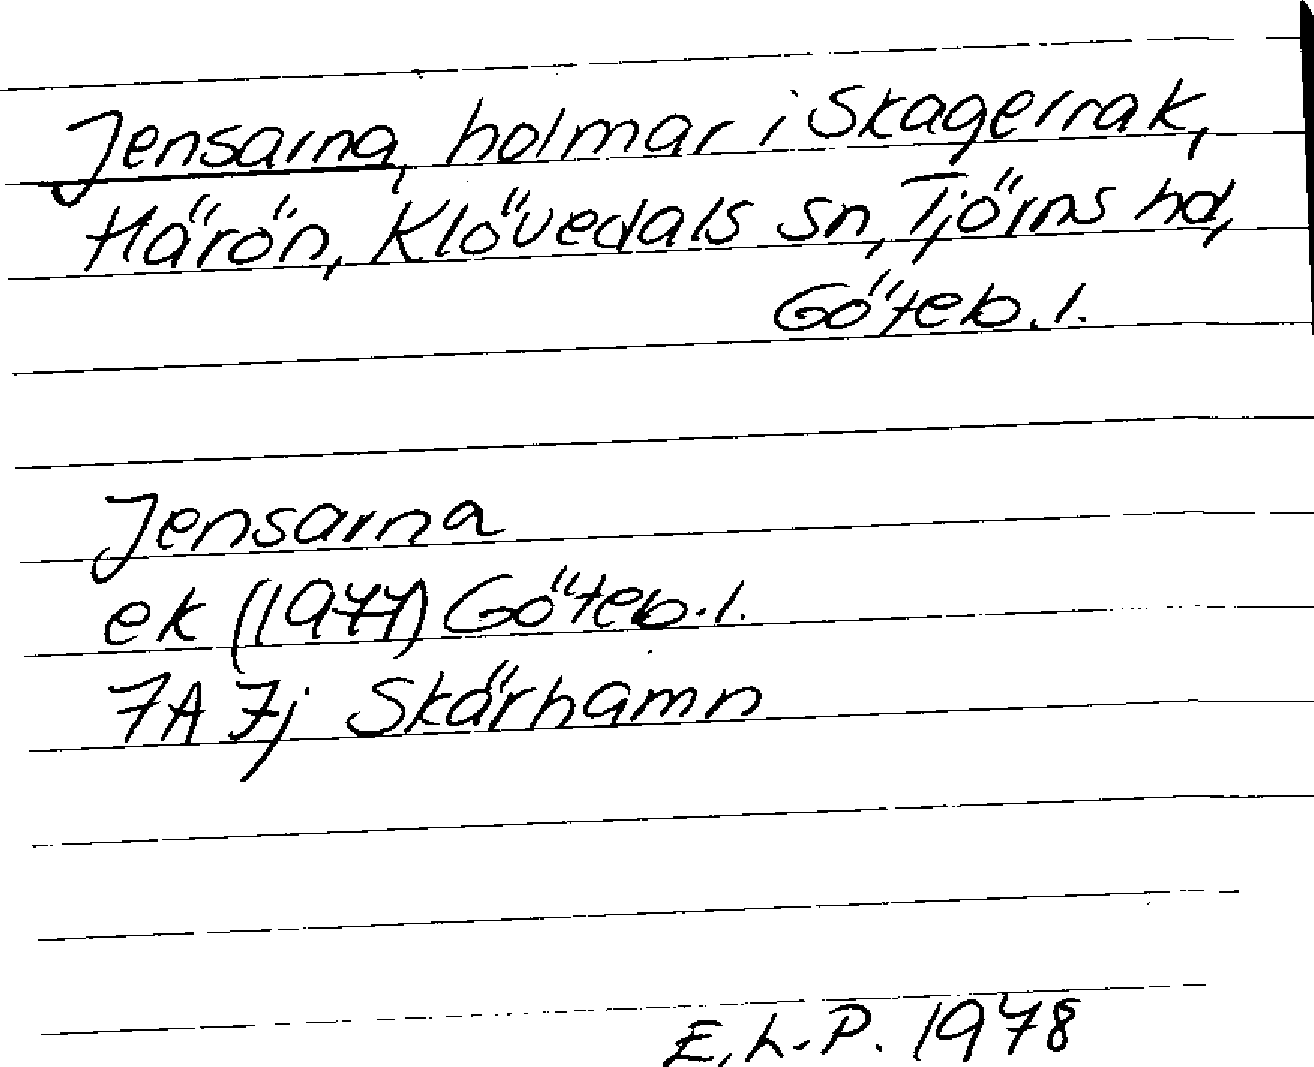 Jensarna, holmar i Skagerrak,
Härön, Klövedals sn, Tjörns hd,
Göteb.l.
Jensarna
ek (1977) Göteb.l.
7A 7j Skärhamn
E.L-P. 1978